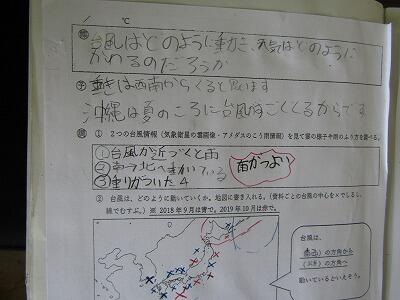 / ℃
問 台風はどのように動き、天気はどのように
かわるのだろうか
予 動きは西南からくると思います
沖縄は夏のころに台風がすごくくるからです
① 2つの台風情報（気象衛星の雲画像・アメダスのこう雨情報）を見て雲の様子や雨のふり方を調べる。
①台風が近づくと雨
②南から北へ動いている
雨がつよい
② 台風は、どのように動いていくか。地図に書き入れる。（資料ごとの台風の中心を×でしるし、
線でむすぶ。）※ 2018年9月は青で、2019年10月は赤で。
台風は、
（南西）の方向から
の方向へ
動いているといえそう。